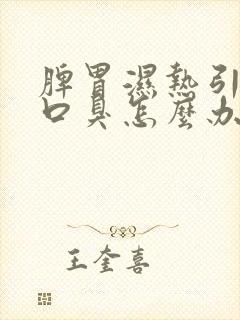 脾胃濕熱引
口臭怎麼办
王奎喜